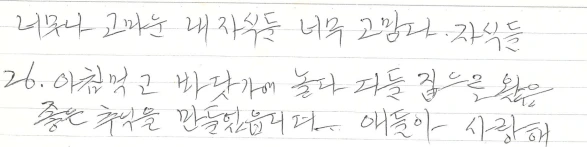 너무나 고마운 내 자식들 너무 고맙다. 자식들
26. 아침먹고 바닷가에 놀다 다들 집으로 왔음
좋은 추억을 만들었읍니다. 애들아 사랑해